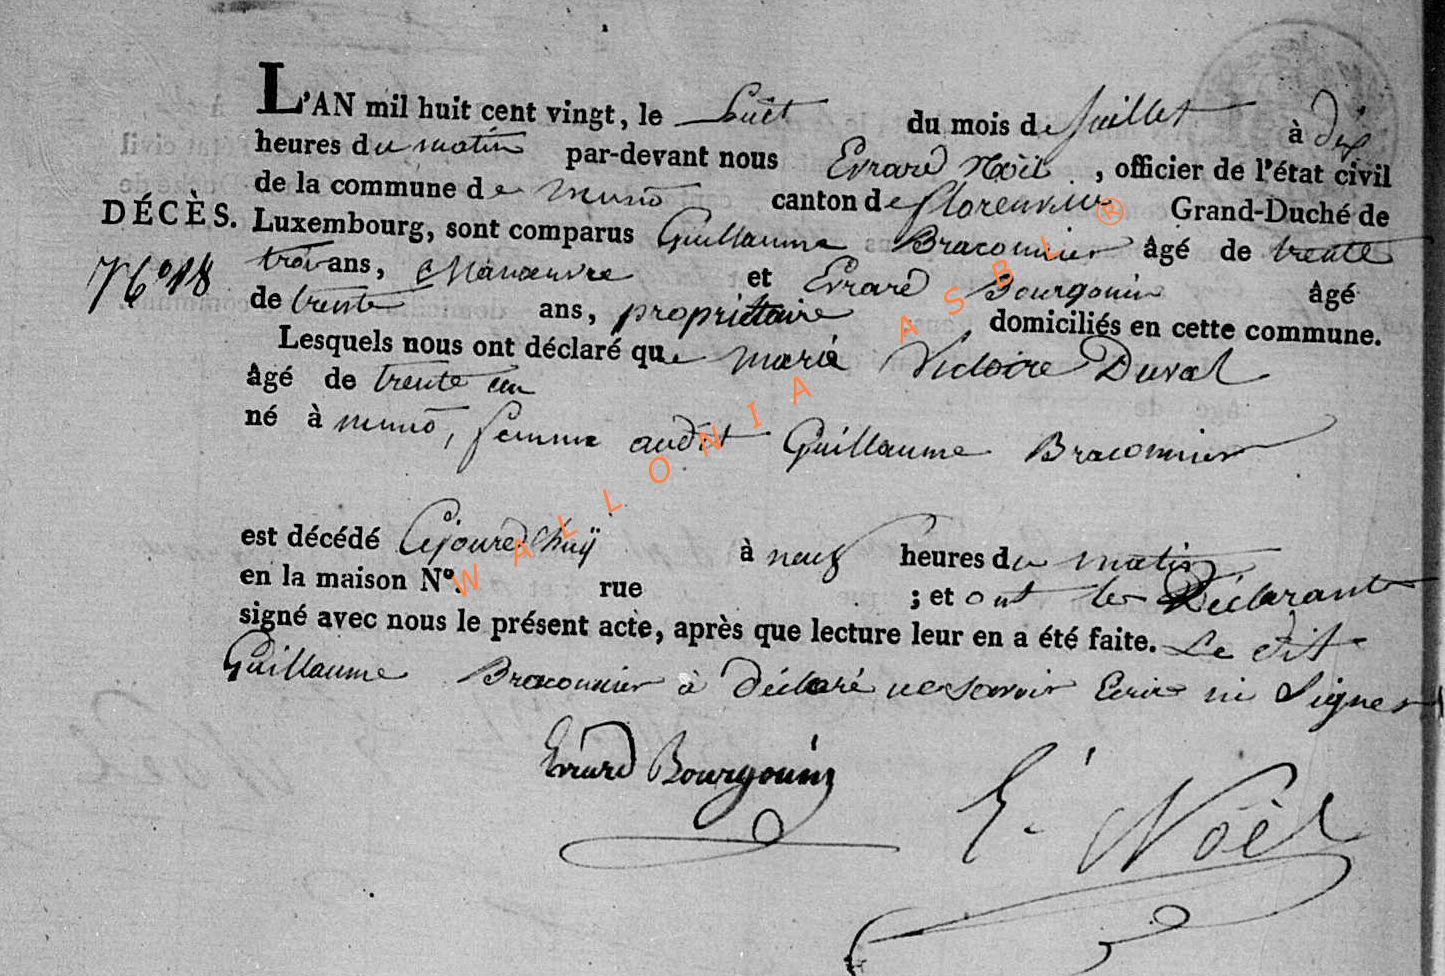 L'AN mil huit cent vingt, le huit du mois de Juillet à dix
heures du matin par-devant nous Evrard Noël, officier de l'état civil
de la commune de muno canton de florenville Grand-Duché de
DÉCÈS. Luxembourg, sont comparus Guillaume Braconnier âgé de trente
N° 18 trois ans, Manoeuvre et Evrard Bourgouin âgé
de trente ans, propriétaire, domiciliés en cette commune.
Lesquels nous ont déclaré que marie Victoire Duval
âgé de trente un
né à muno, femme audit Guillaume Braconnier
est décédé Cejourd'huÿ à neuf heures du matin
en la maison N°. rue ; et ont les Déclarants
signé avec nous le présent acte, après que lecture leur en a été faite. Le dit
Guillaume Braconnier à déclaré ne savoir Ecrire ni Signer
Evrard Bourgouin
E. Noël
WALLONIA ASBL ®